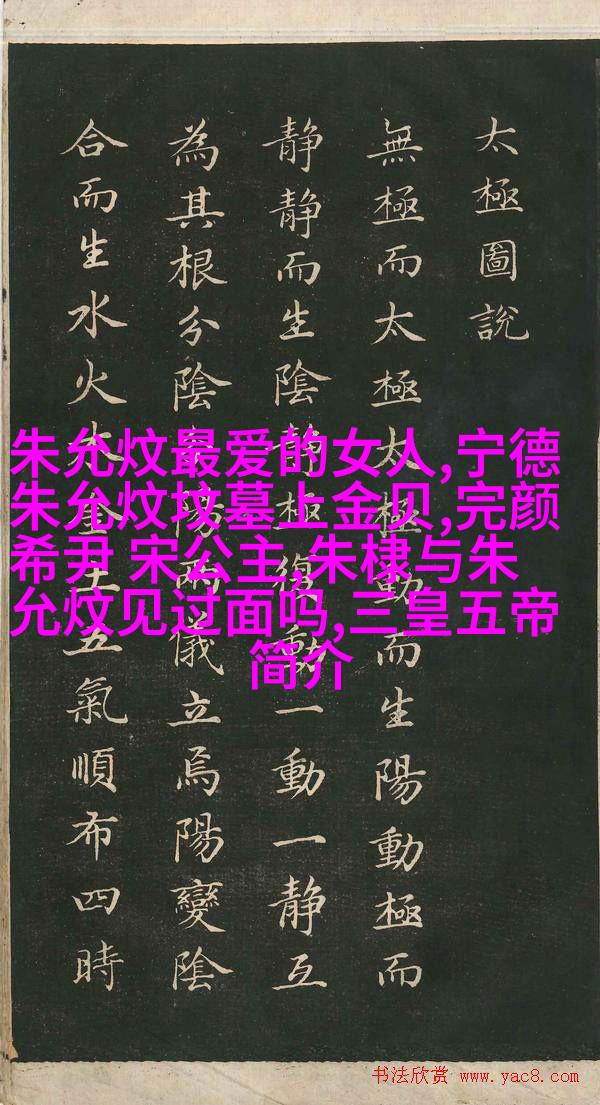 太極圖說
無極而太極太極動而生陽動極而
静静而生陰静極復動一動一静互
為其根分陰分陽兩儀立焉陽變陰
合而生水火木金土五氣順布四時
朱允炆最爱的女人,宁德
朱允炆坟墓上金贝,完颜
希尹 宋公主,朱棣与朱
允炆见过面吗,三皇五帝
简介
书法欣赏 www.yac8.com